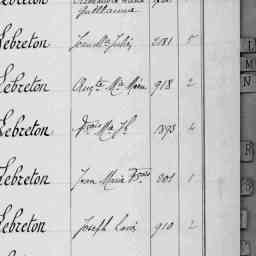 Guillaume
Lebreton Jean Mie Julien 2181 5
Lebreton Augte Mie 918 2
Lebreton Frois Mie Jh 1893 4
Lebreton Jean Marie Frois 201 1
Lebreton Joseph Louis 910 2
Lebreton